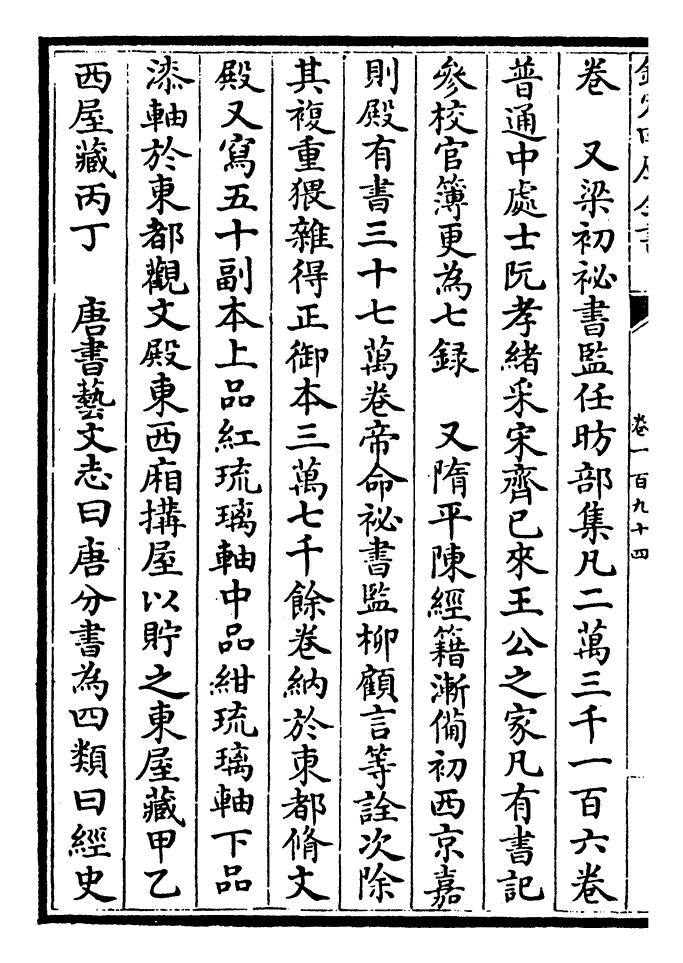 欽定四庫全書
卷一百九十四
卷　又梁初祕書監任昉部集凡二萬三千一百六卷
普通中處士阮孝緒采宋齊已來王公之家凡有書記
參校官簿更為七録　又隋平陳經籍漸備初西京嘉
則殿有書三十七萬卷帝命祕書監柳顧言等詮次除
其複重猥雜得正御本三萬七千餘卷納於東都脩文
殿又寫五十副本上品紅琉璃軸中品紺琉璃軸下品
漆軸於東都觀文殿東西廂搆屋以貯之東屋藏甲乙
西屋藏丙丁　唐書藝文志曰唐分書為四類曰經史